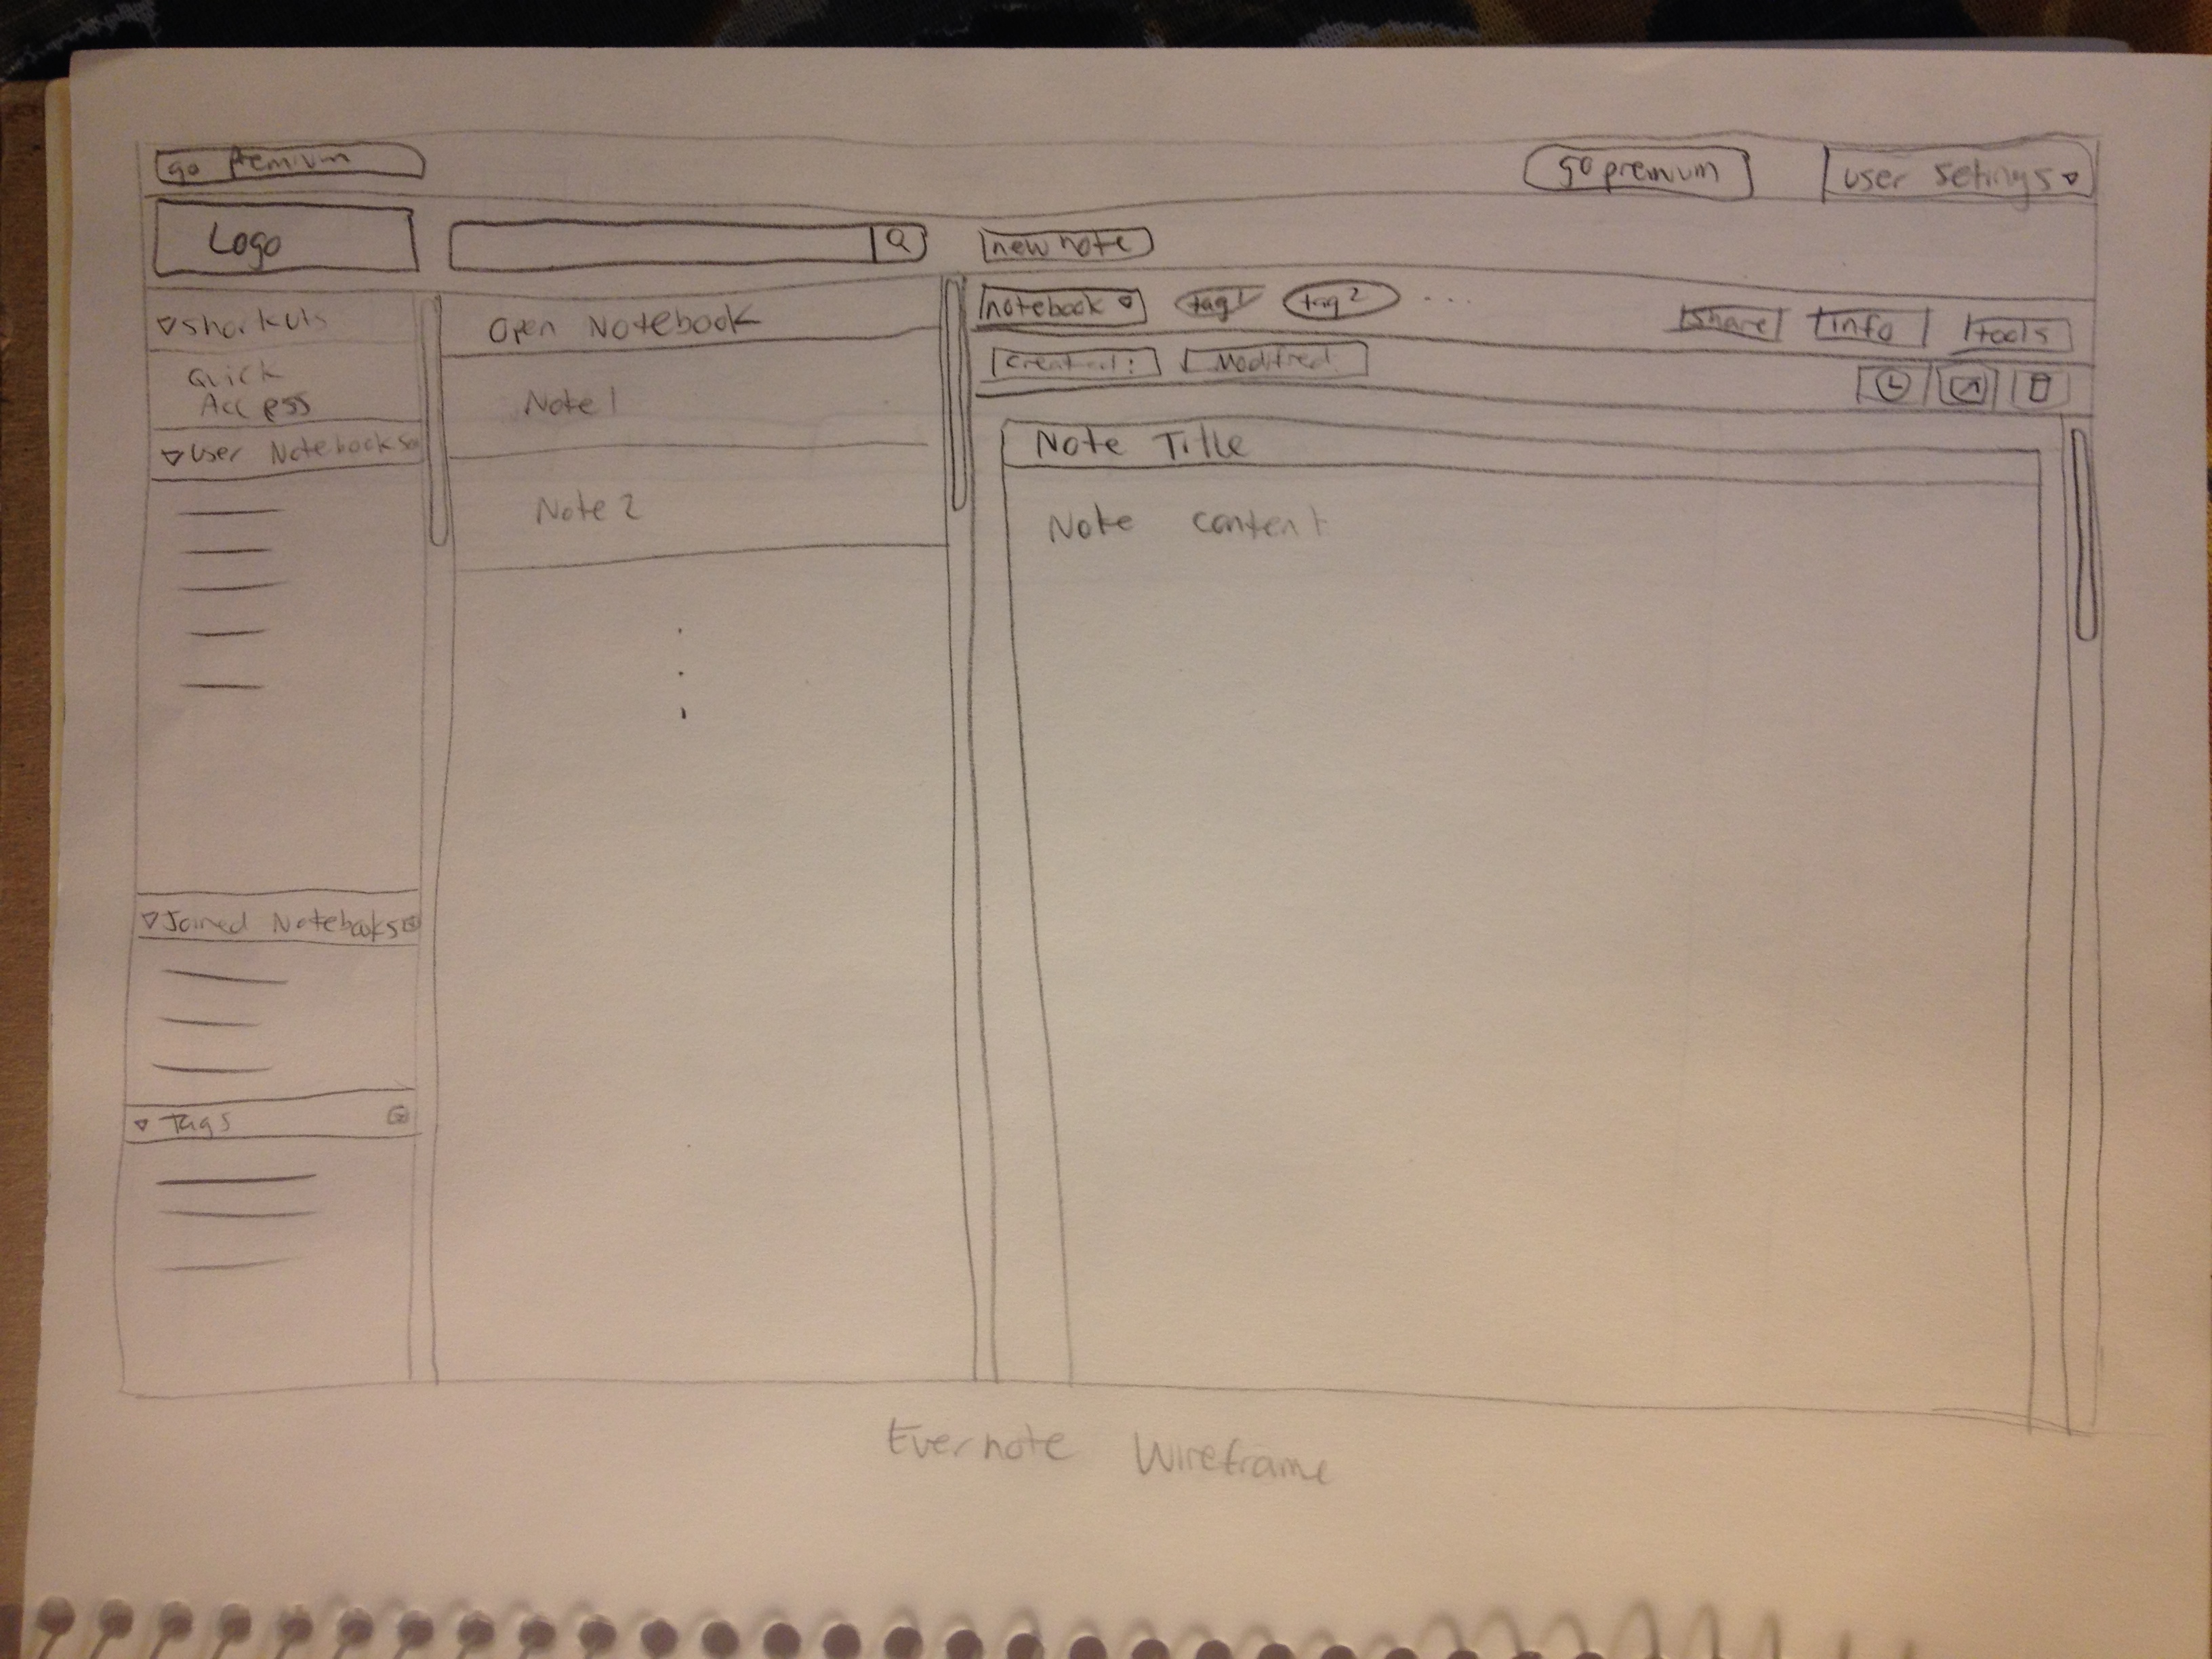 go premium
go premium
user setings
Logo
new note
shortcuts
Quick
Access
User Notebooks
Joined Notebooks
Tags
Open Notebook
Note 1
Note 2
notebook tag1 tag2 ...
share info tools
created: Modified
Note Title
Note content
Evernote Wireframe